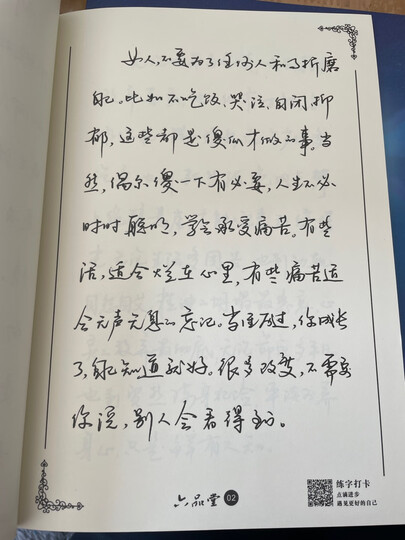 女人，不要为了任何人和事折磨
自己。比如不吃饭、哭泣、自闭、抑
郁，这些都是傻瓜才做的事。当
然，偶尔傻一下有必要，人生不必
时时聪明，学会承受痛苦。有些
话，适合烂在心里，有些痛苦适
合无声无息的忘记。当经历过，你成长
了，自己知道就好。很多改变，不需要
你说，别人会看得到。
六品堂 02
练字打卡
点滴进步
遇见更好的自己